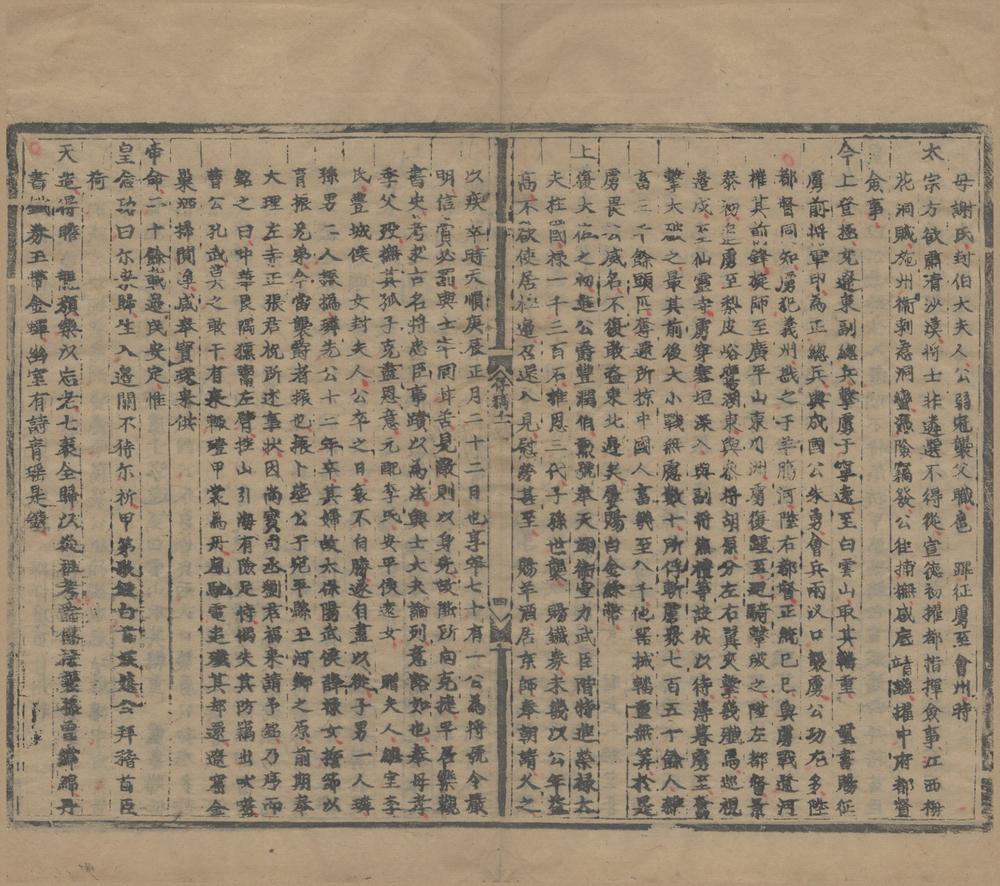 母謝氏封伯大夫人公弱冠襲父職扈 蹕征虜至會州時
太宗方欲肅清沙漠將士非遴選不得從宣德初擢都指揮僉事江西梅
花洞賊施州衛剌惹洞蠻憑險竊發公往捕撫咸底 靖繼擢中府都督
僉事
今上登極充遼東副總兵擊虜于寧遠至白雲山取其輜重 璽書賜征
虜前將軍印為正總兵與成國公朱勇會兵兩以口襲虜公功尤多陞
都督同知虜犯義州戡之于羊腸河陞右都督正統己巳與虜戰遼河
摧其前鋒旋師至廣平山東月洲虜復鏖至迎騎擊敗之陞左都督景
泰初追虜至梨皮峪鴉湖東與叅將胡原分左右翼夾擊幾殲焉巡視
邊戍至仙靈寺虜穿塞垣深入與副將焦禮等設伏以待薄暮虜至奮
擊大破之最其前後大小戰無慮數十所俘斬虜衆七百五十餘人獲
畜三千餘頭匹奪還所掠中國人畜幾至八千他器械輜重無筭於是
虜畏公威名不復敢盗東北邊矣屢賜白金綵幣
上復大位之初進公爵豐潤伯勲號奉天翊衛宣力武臣階特進榮祿大
夫柱國祿一千三百石推恩三代子孫世襲 賜鐵券未幾以公年益
高不欲使居極邊召還入見慰勞甚至 賜羊酒居京師奉朝請久之
以疾卒時天順庚辰正月二十二日也享年七十有一公為將號令嚴
明信賞必罰與士卒同甘苦見敵則以身先故斷所向克捷平居樂觀
書史考求古名將忠臣事蹟以為法與士大夫論列意豁如也奉母孝
季父歿撫其孤子克盡恩意元配李氏安平侯遠女 贈夫人繼室李
氏豐城侯 女封夫人公卒之日哀不自勝遂自盡以從子男一人璘
孫男二人謀撝璘先公十二年卒其婦故太保陽武侯薛祿女撝節以
育振兄弟今當襲爵者振也振卜塟公于宛平縣玉河鄉之原前期奉
大理左寺正張君祝所述事狀因尚寳司丞獨君福來請予銘乃序而
銘之曰中華艮隅獫鬻左臂控山引海有險足恃偶失其防竊出吠螫
曹公孔武莫之敢干有裘輙殪甲裳為丹風馳電走殲其部還遼窩金
巢洒掃閒淨咸奉寳璁來供
帝命二十餘載邊民安定惟
皇念功曰尔耆歸生入邊關不待尔祈甲第歌鐘白首娱嬉公拜稽首臣
荷
天造得瞻 龍顏樂以忘老七袠全歸以從祖考 襚 曹 綿綿丹
書鐵券玉帶金蟬幽室有詩庸瑤是鐫